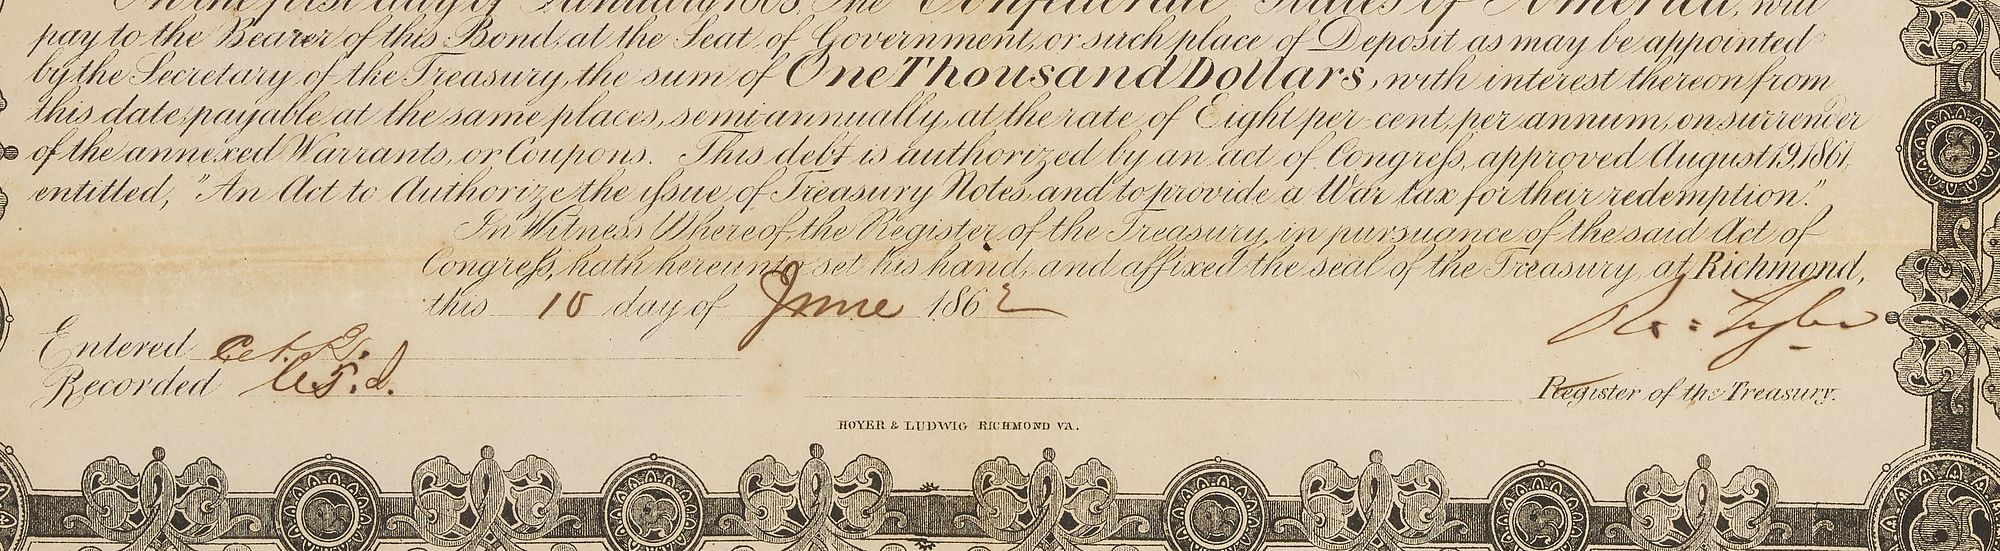 On the first day of January, 1868, The Confederate States of America, will
pay to the Bearer of this Bond, at the Seat of Government, or such place of Deposit as may be appointed
by the Secretary of the Treasury, the sum of One Thousand Dollars, with interest thereon from
this date, payable at the same places, semi annually, at the rate of Eight per cent, per annum, on surrender
of the annexed Warrants, or Coupons. This debt is authorized by an act of Congress, approved August 19, 1861,
entitled, "An Act to Authorize the issue of Treasury Notes, and to provide a War tax for their redemption."
In Witness Whereof, the Register of the Treasury, in pursuance of the said Act of
Congress, hath hereunto set his hand, and affixed the seal of the Treasury, at Richmond,
this 10 day of June 1862
Ro: Tyler
Entered
Recorded
Register of the Treasury.
HOYER & LUDWIG RICHMOND VA.